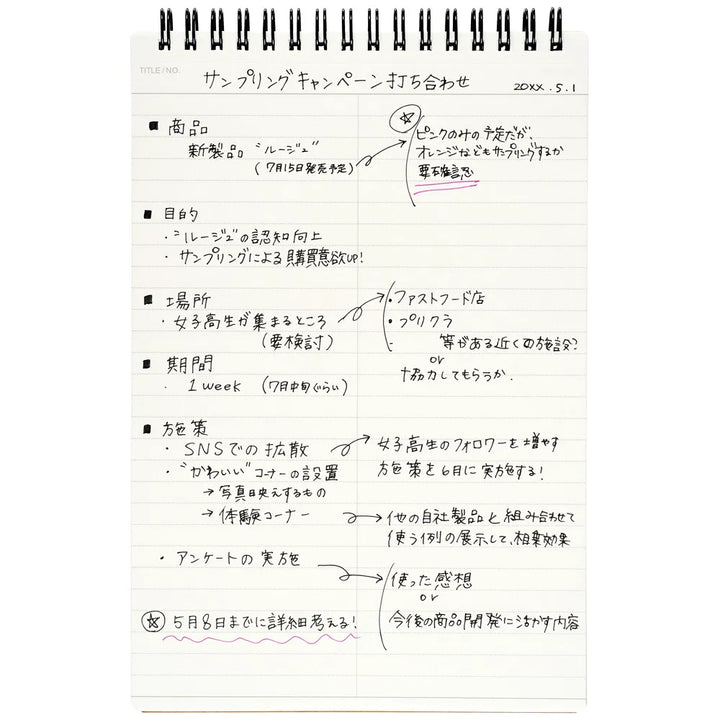 TITLE / NO.
サンプリングキャンペーン打ち合わせ
20XX.5.1
■ 商品
新製品 "ルージュ"
(7月15日発売予定)
☆
ピンクのみの予定だが、
オレンジなどもサンプリングするか
要確認
■ 目的
・"ルージュ"の認知向上
・サンプリングによる購買意欲UP!
■ 場所
・女子高生が集まるところ
(要検討)
・ファストフード店
・プリクラ
等がある近くの施設?
or
協力してもらうか.
■ 期間
・1 week (7月中旬ぐらい)
■ 施策
・SNSでの拡散
女子高生のフォロワーを増やす
施策を6月に実施する!
・"かわいい"コーナーの設置
→写真映えするもの
→体験コーナー
他の自社製品と組み合わせて
使う例の展示して、相乗効果
・アンケートの実施
使った感想
or
今後の商品開発に活かす内容
☆ 5月8日までに詳細考える!